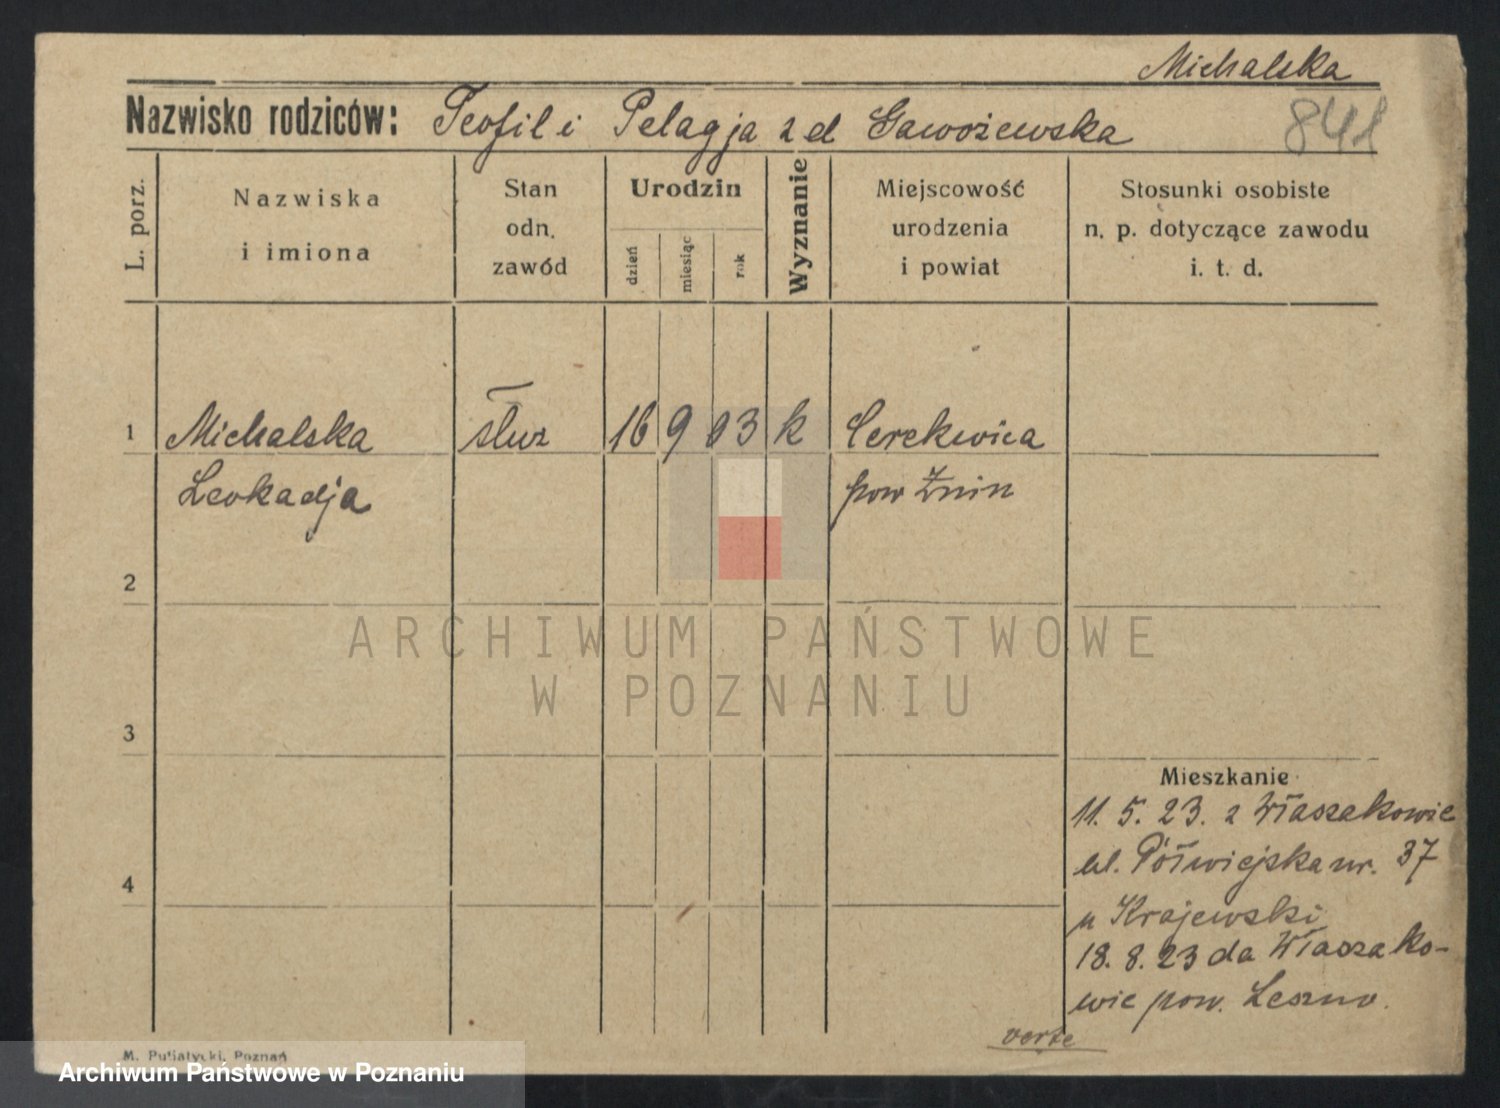 Michalska
Nazwisko rodziców: Teofil i Pelagja z d Gawożewska
841
L. porz.
Nazwiska
i imiona
Stan
odn.
zawód
Urodzin
dzień
miesiąc
rok
Wyznanie
Miejscowość
urodzenia
i powiat
Stosunki osobiste
n. p. dotyczące zawodu
i. t. d.
1 Michalska służ 16 9 03 k Cerekwica
Leokadja pow Żnin
2
ARCHIWUM PAŃSTWOWE
W POZNANIU
3
Mieszkanie
11. 5. 23. z Właszakowic
ul. Półwiejska nr. 37
4
u Krajewski
18. 8. 23 do Włoszako-
wic pow. Leszno.
verte
M. Putiatycki, Poznań
Archiwum Państwowe w Poznaniu